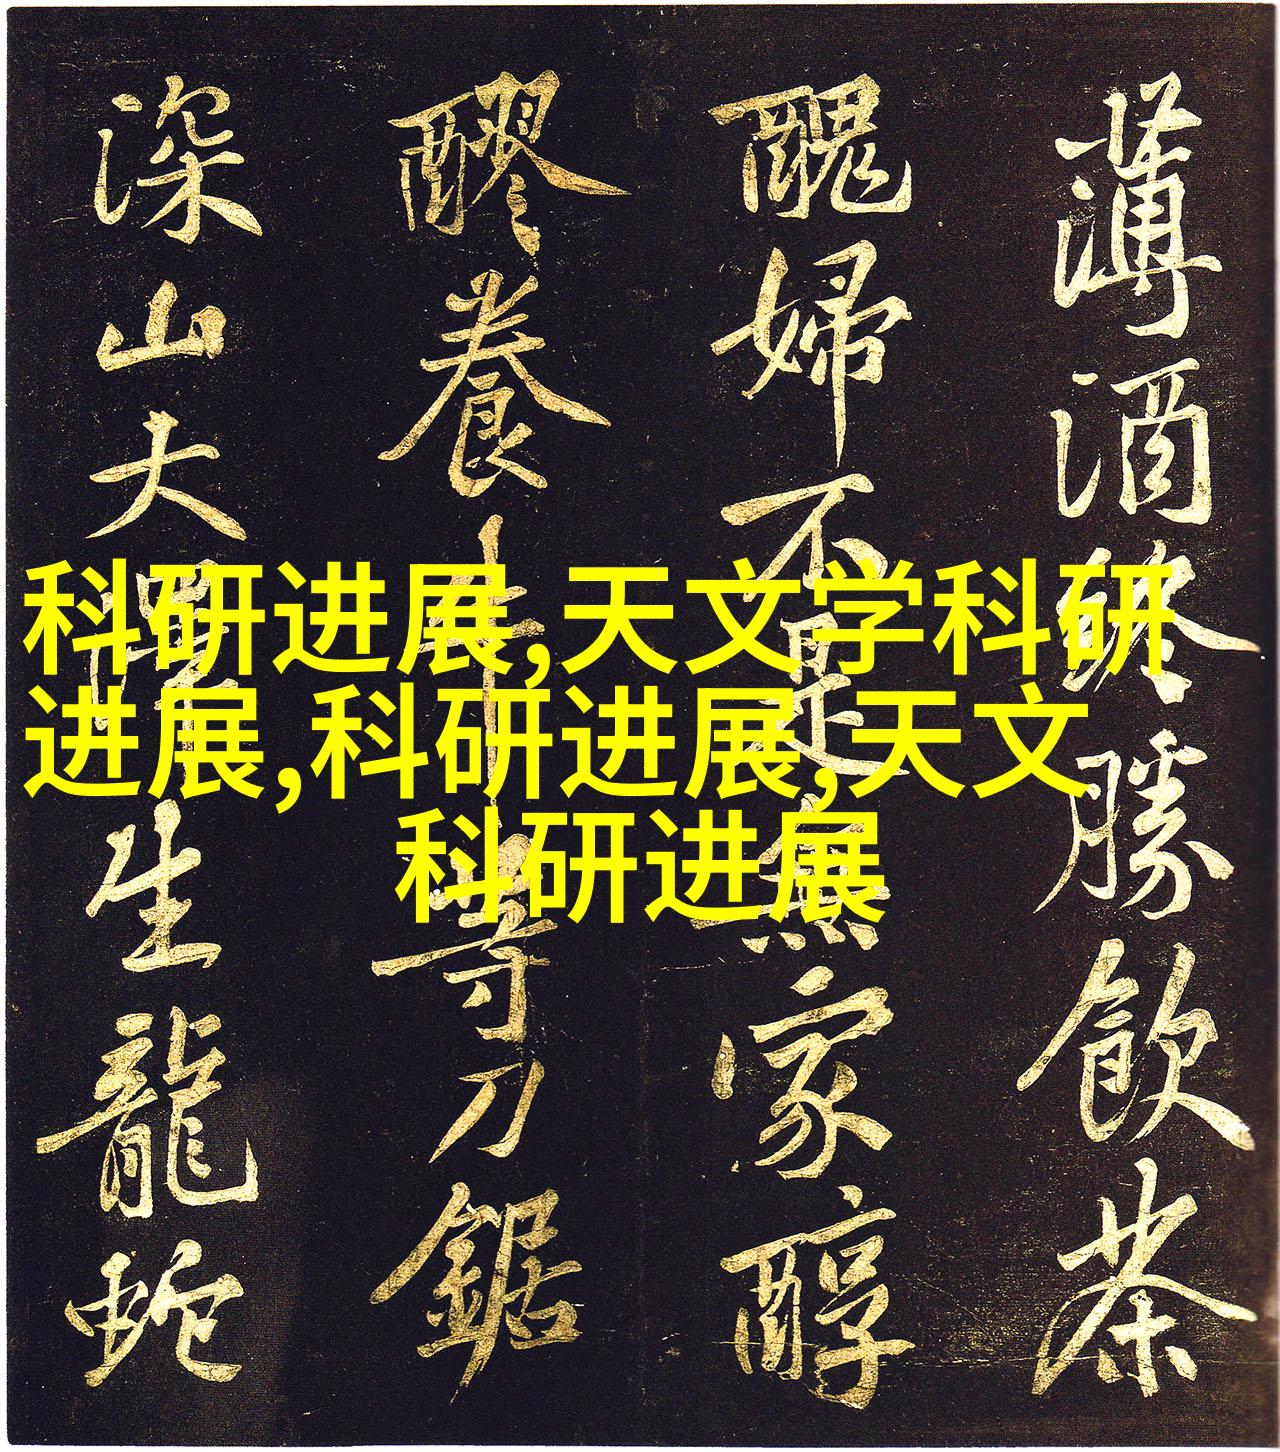 科研进展,天文学科研
进展,科研进展,天文
科研进展
薄酒終勝飲茶
醜婦不是無家醇
醪養牛等刀鋸
深山大澤生龍蛇